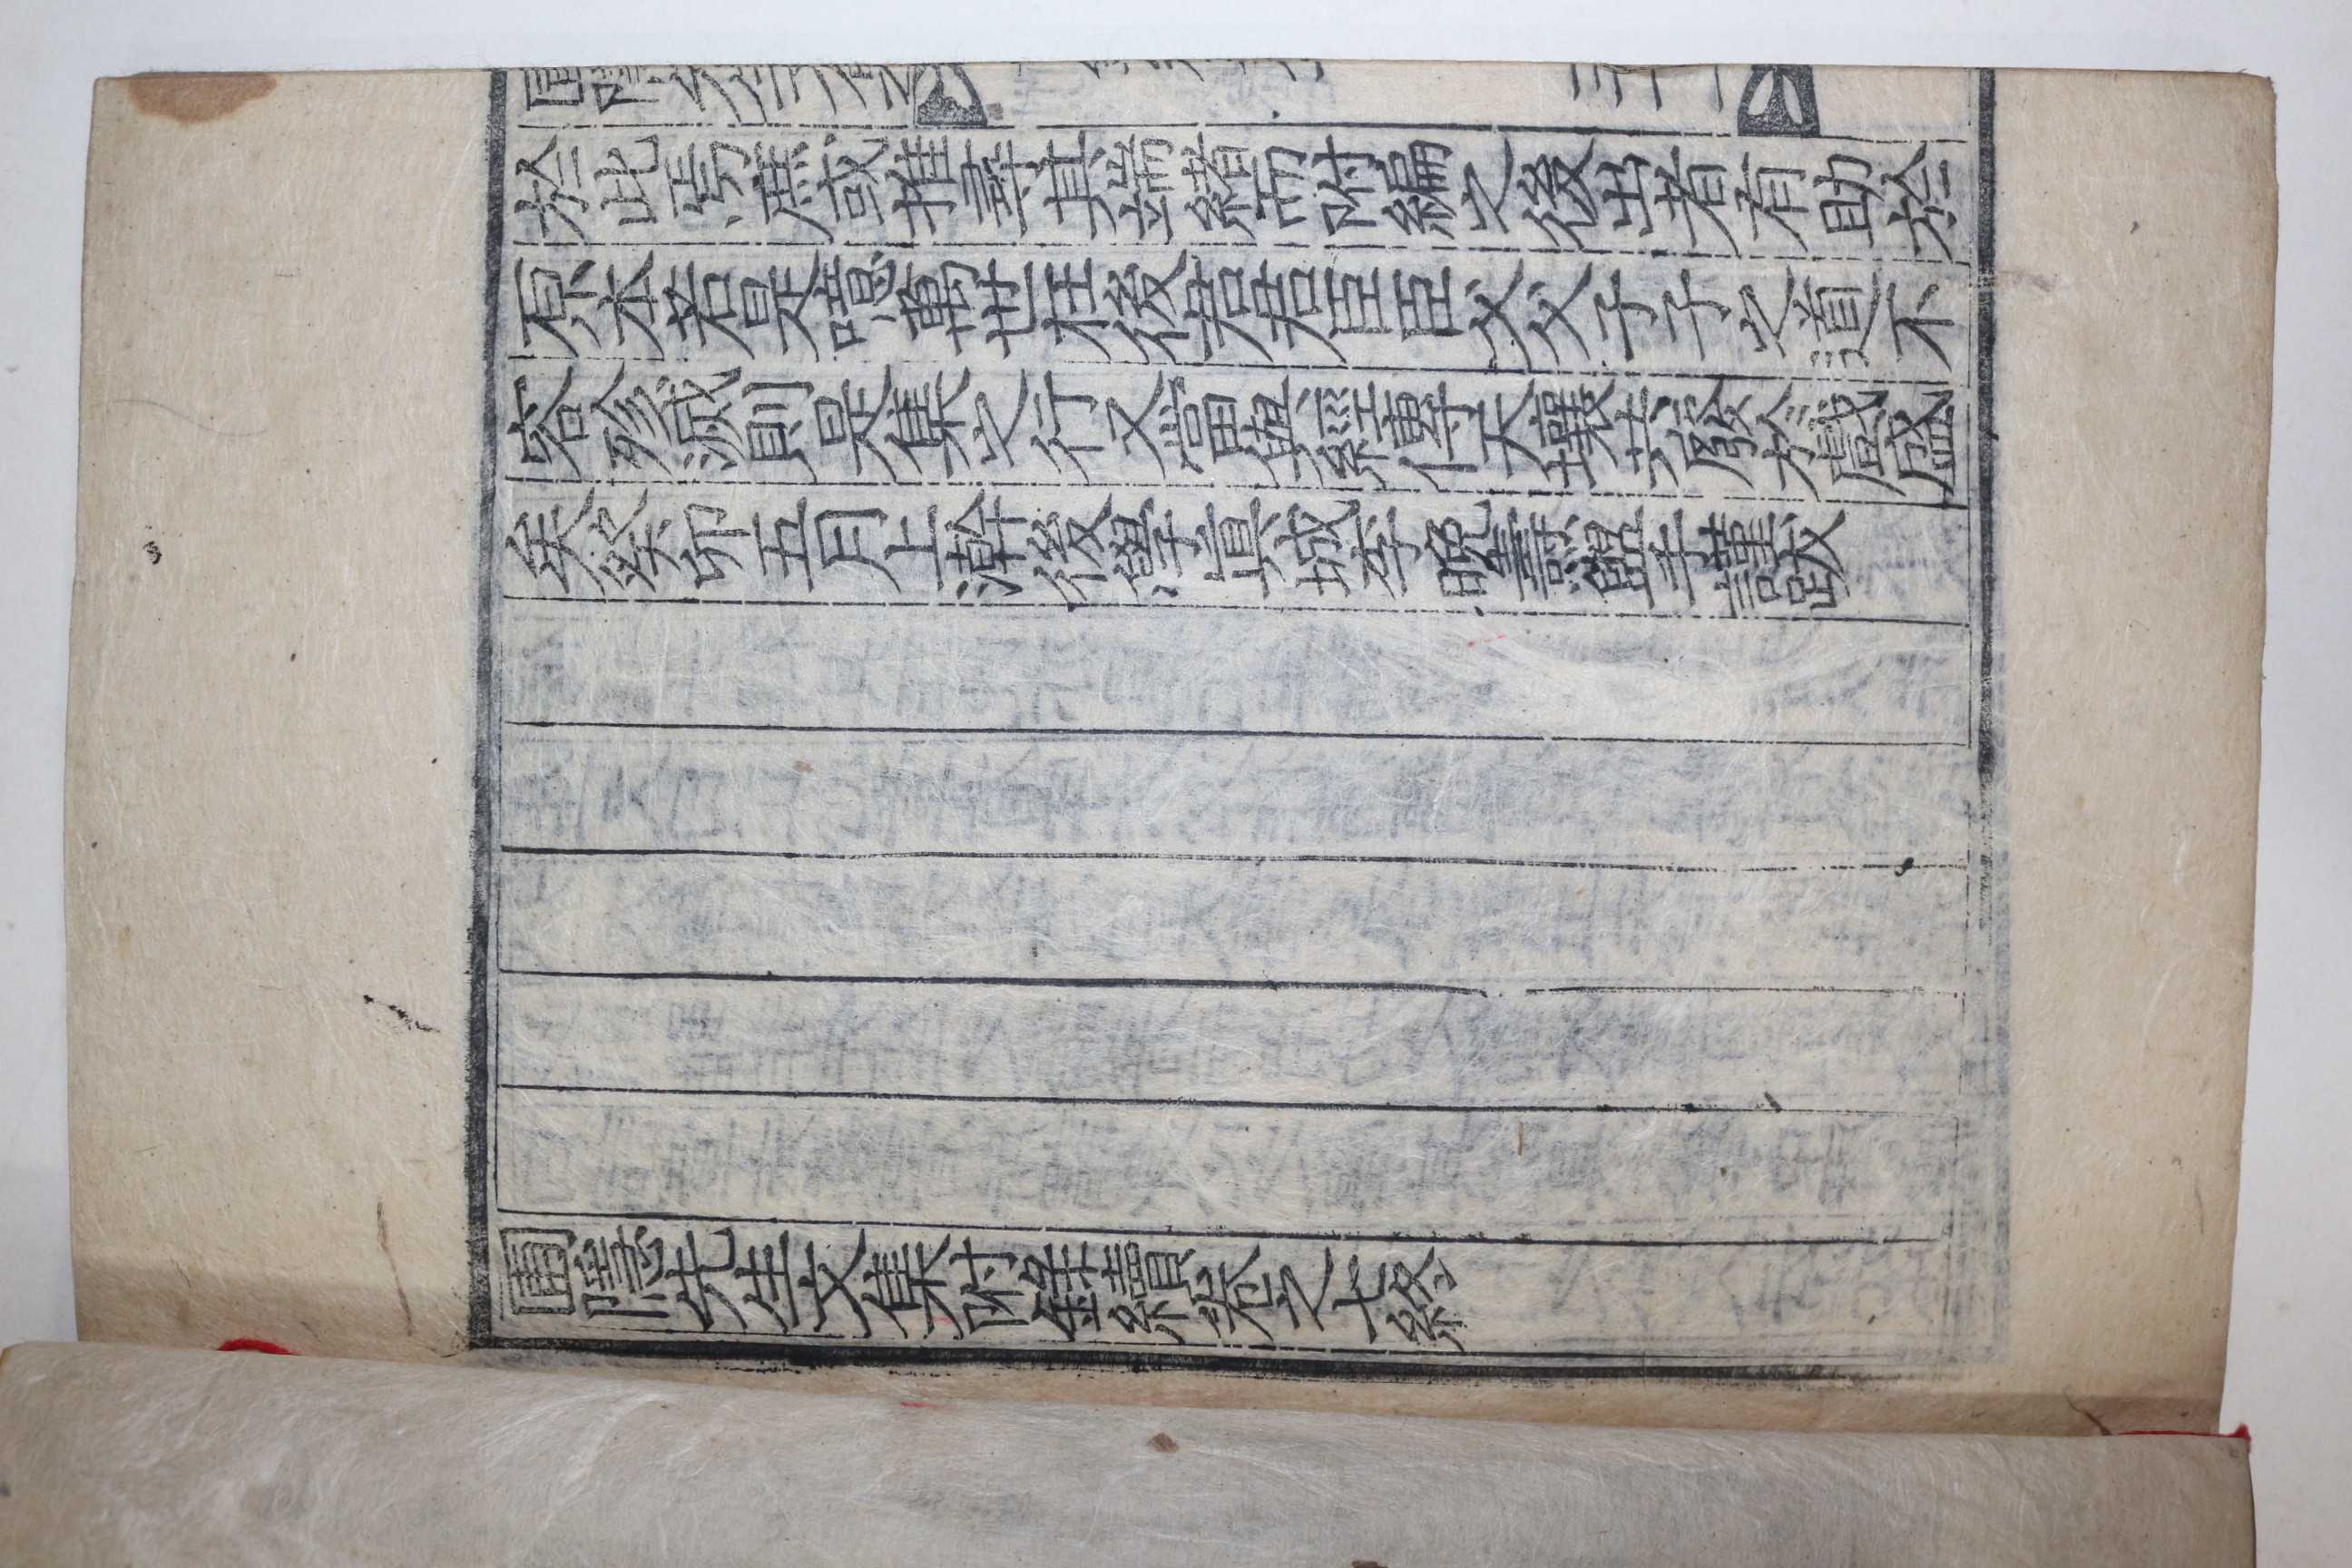 於此焉或推尋其端緖而附編之後出者有助於
原本若是噫萬世在後君君臣臣父父子子之道不
容殄滅則是集之行又當與經傳天壤共於戲盛
矣癸卯五月上澣後學眞城李晩燾盥手謹跋
圃隱先生文集附錄續卷之七終